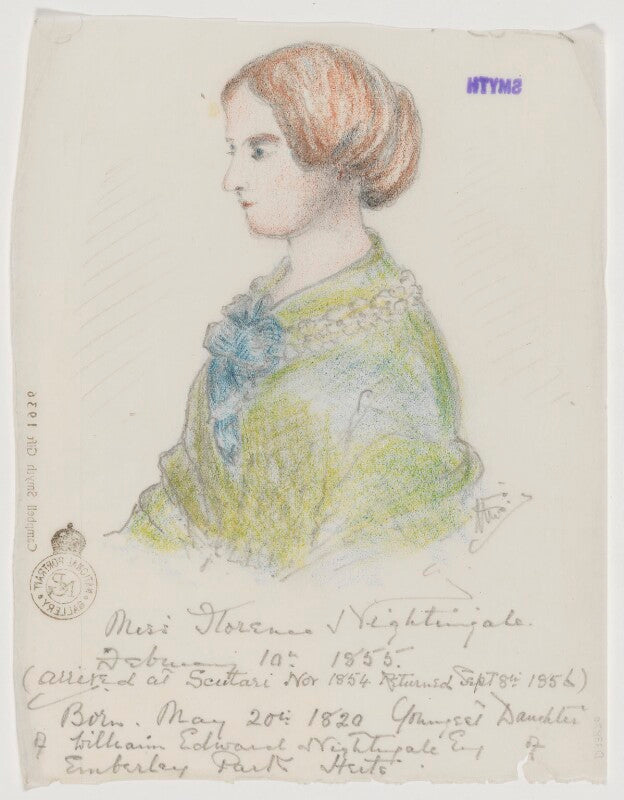 SMYTH
Campbell Smyth Gift 1936
NATIONAL PORTRAIT GALLERY
Miss Florence Nightingale.
February 10th 1855.
(arrived at Scutari Nov 1854. Returned Sept 8th 1856)
Born. May 20th 1820 Youngest Daughter
of William Edward Nightingale Esq of
Emberley Park Herts.